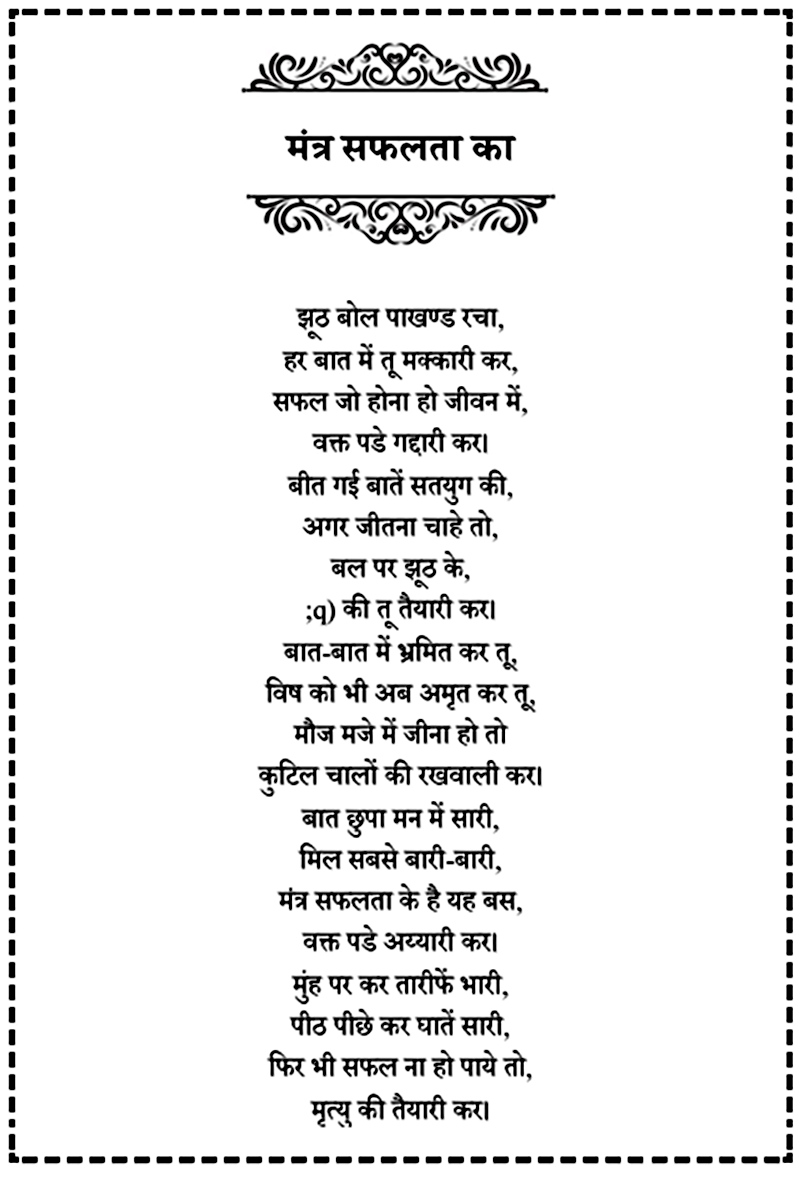 मंत्र सफलता का
झूठ बोल पाखण्ड रचा,
हर बात में तू मक्कारी कर,
सफल जो होना हो जीवन में,
वक्त पडे गद्दारी कर।
बीत गई बातें सतयुग की,
अगर जीतना चाहे तो,
बल पर झूठ के,
;q) की तू तैयारी कर।
बात-बात में भ्रमित कर तू,
विष को भी अब अमृत कर तू,
मौज मजे में जीना हो तो
कुटिल चालों की रखवाली कर।
बात छुपा मन में सारी,
मिल सबसे बारी-बारी,
मंत्र सफलता के है यह बस,
वक्त पडे अय्यारी कर।
मुंह पर कर तारीफें भारी,
पीठ पीछे कर घातें सारी,
फिर भी सफल ना हो पाये तो,
मृत्यु की तैयारी कर।